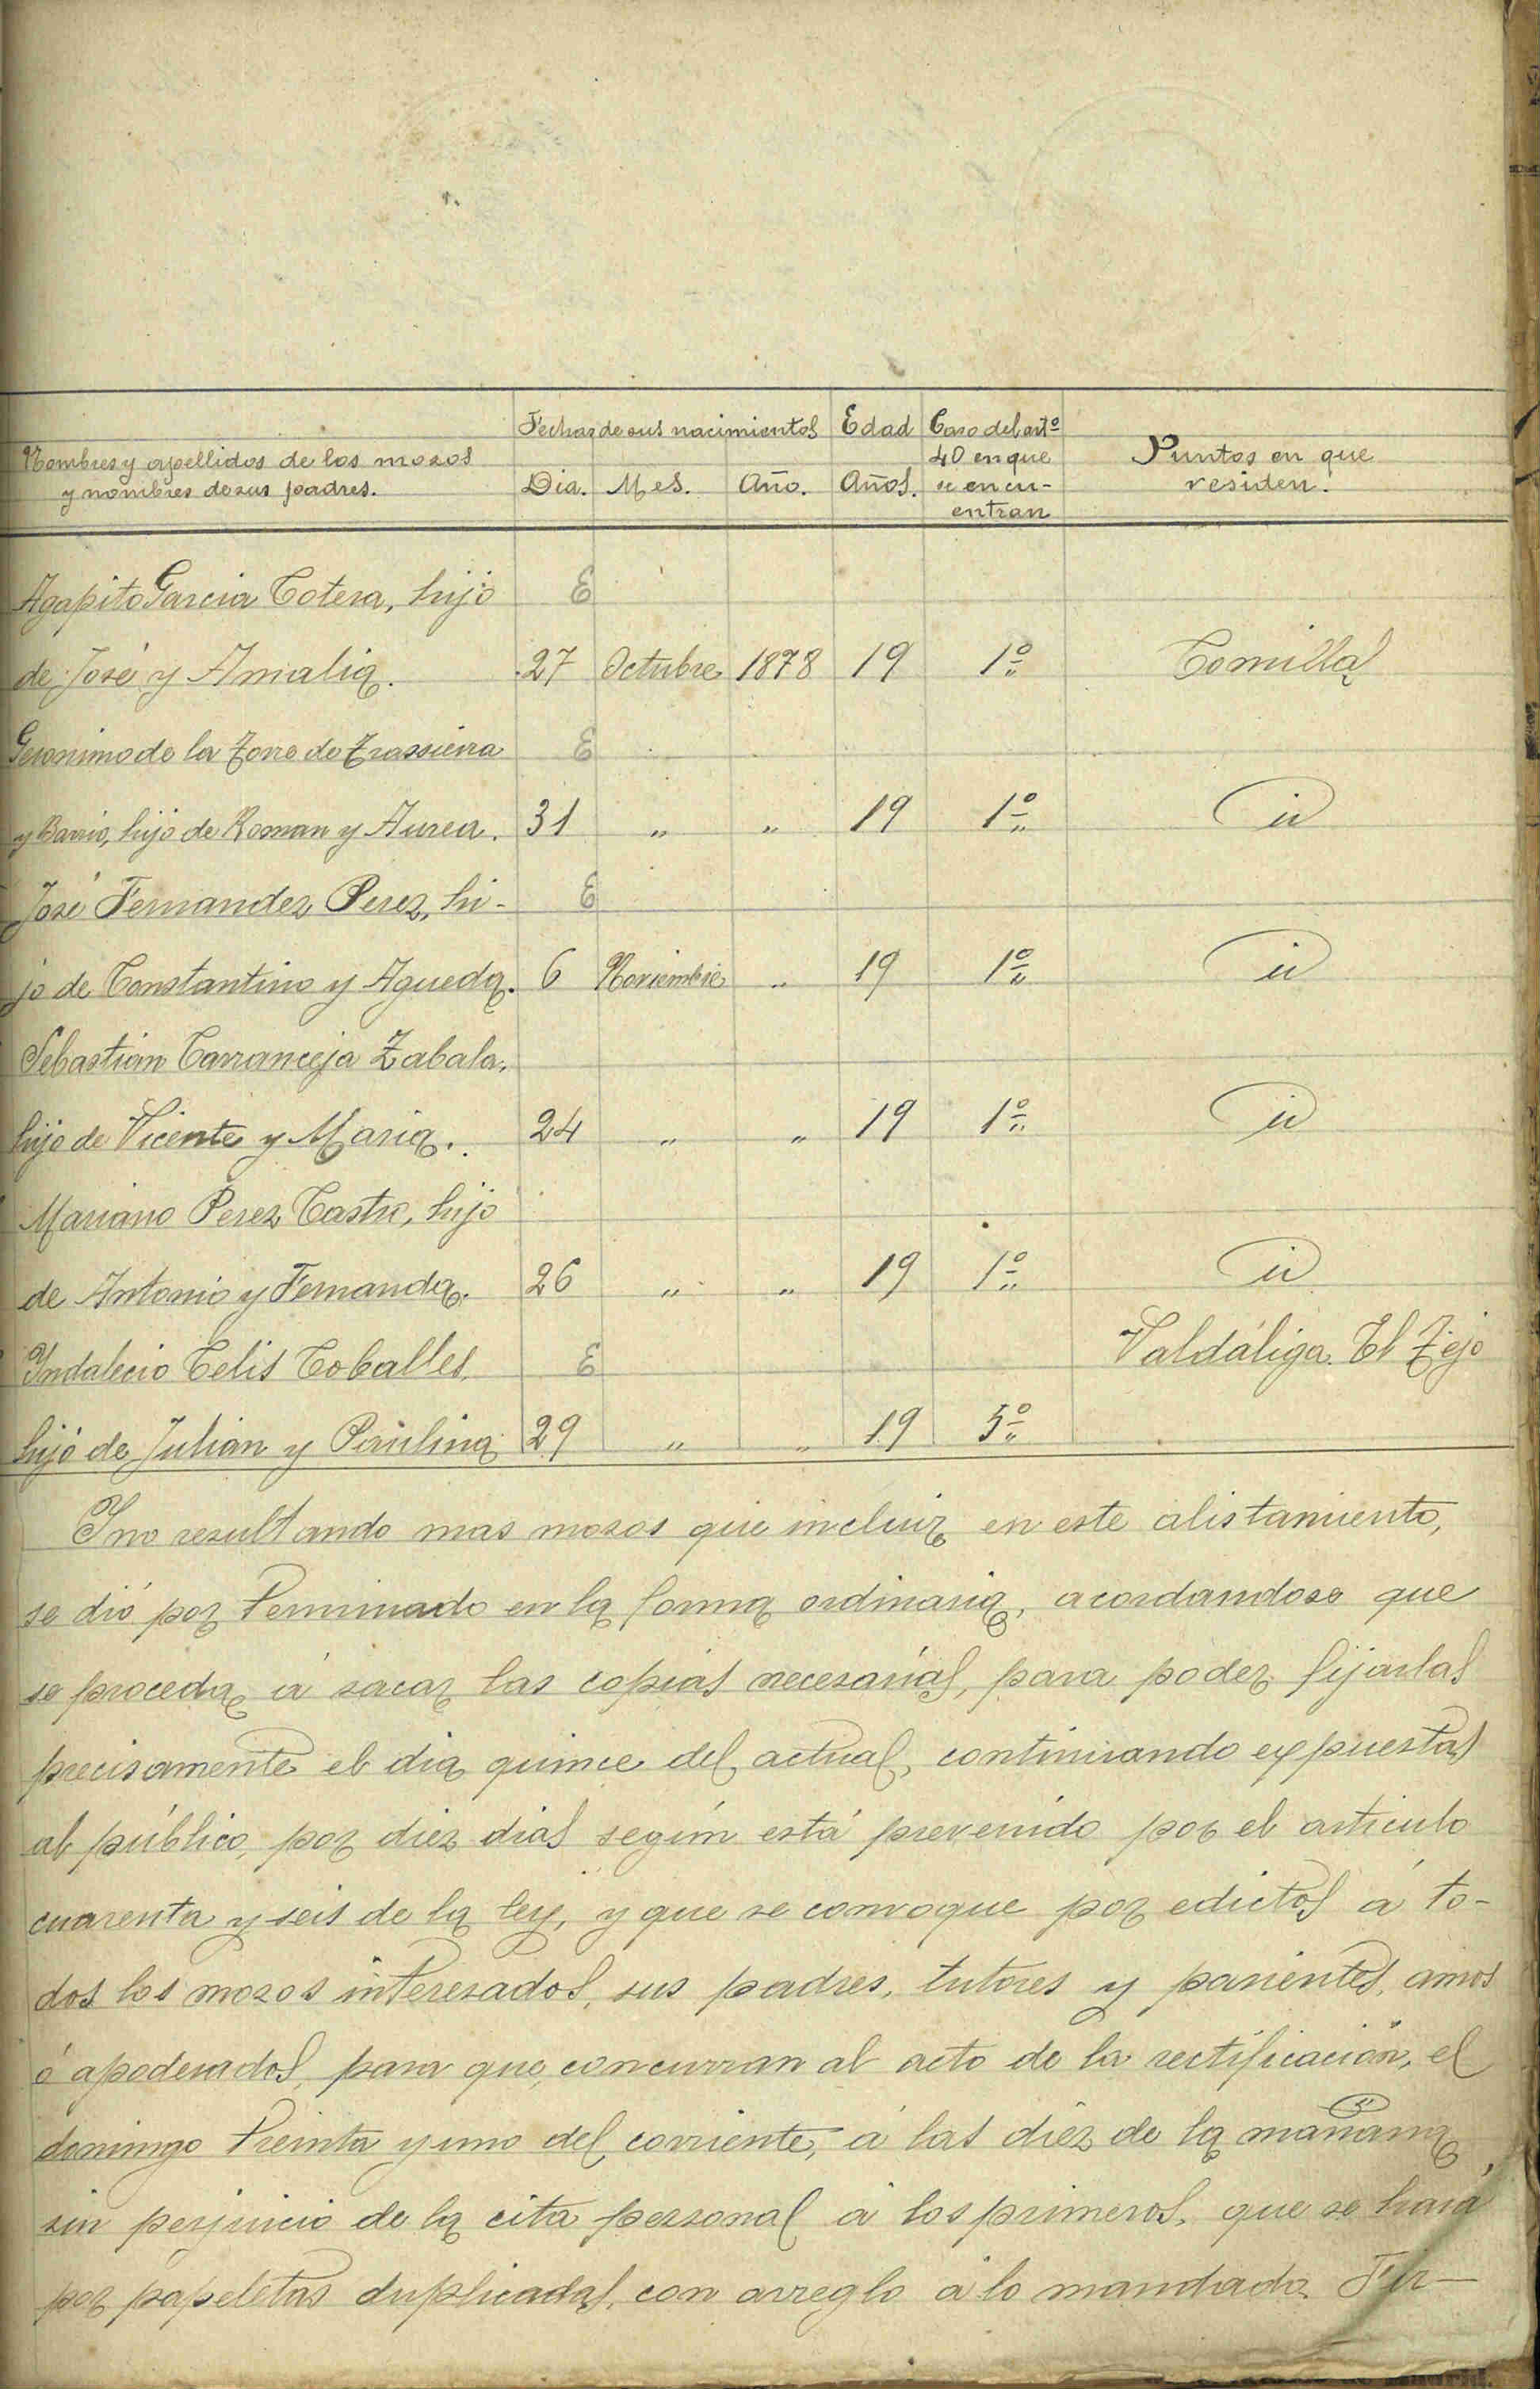 Nombres y apellidos de los mozos y nombres de sus padres. Fechas de sus nacimientos Dia. Mes. Año. Edad Años. Caso del artº 40 en que se encuentran Puntos en que residen.
Agapito Garcia Cotera, hijo E
de José y Amalia. 27 Octubre 1878 19 1º Comillas
Geronimo de la Torre de Trassierra E
y Barrio, hijo de Roman y Aurea. 31 " " 19 1º id
José Fernandez Perez, hi- E
jo de Constantino y Agueda. 6 Noviembre " 19 1º id
Sebastian Carranceja Zabala,
hijo de Vicente y Maria. 24 " " 19 1º id
Mariano Perez Castro, hijo
de Antonio y Fernanda. 26 " " 19 1º id
Indalecio Celis Coballes, E Valdáliga. El Tejo
hijo de Julian y Paulina 29 " " 19 5º
Y no resultando mas mozos que incluir en este alistamiento,
se dió por terminado en la forma ordinaria, acordandose que
se proceda á sacar las copias necesarias, para poder fijarlas
precisamente el dia quince del actual, continuando expuestas
al público, por diez dias según está prevenido por el articulo
cuarenta y seis de la ley, y que se convoque por edictos á to-
dos los mozos interesados, sus padres, tutores y parientes, amos
ó apoderados, para que concurran al acto de la rectificación, el
domingo treinta y uno del corriente, á las diez de la mañana,
sin perjuicio de la cita personal á los primeros, que se hará
por papeletas duplicadas, con arreglo á lo mandado. Fir-